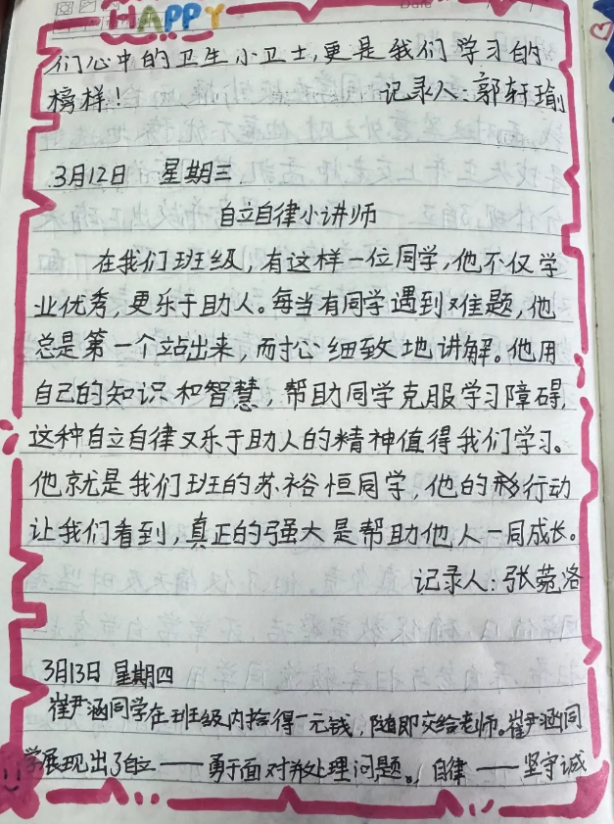 HAPPY
Date
们心中的卫生小卫士,更是我们学习的
榜样!　记录人:郭轩瑜
3月12日 星期三
自立自律小讲师
在我们班级,有这样一位同学,他不仅学
业优秀,更乐于助人。每当有同学遇到难题,他
总是第一个站出来,耐心细致地讲解。他用
自己的知识和智慧,帮助同学克服学习障碍,
这种自立自律又乐于助人的精神值得我们学习。
他就是我们班的苏裕恒同学,他的行动
让我们看到,真正的强大是帮助他人一同成长。
记录人:张菀洛
3月13日 星期四
崔尹涵同学在班级内拾得一元钱,随即交给老师。崔尹涵同
学展现出了自立——勇于面对并处理问题。,自律——坚守诚